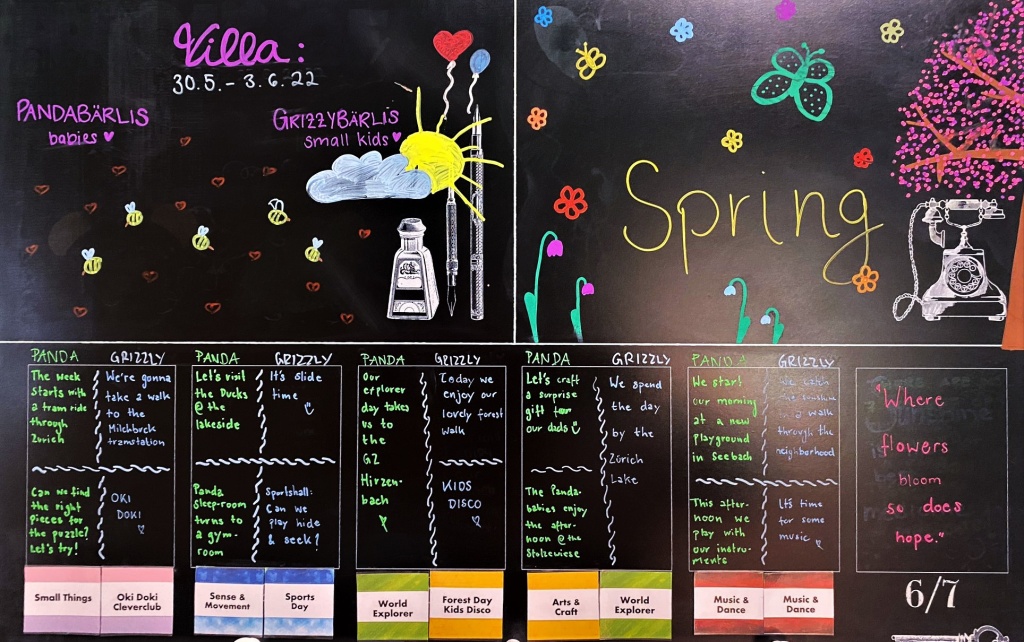 Villa:
30.5. - 3.6.22
PANDABÄRLIS
babies
GRIZZYBÄRLIS
small kids
Spring
PANDA
The week
starts with
a tram ride
through
Zürich
Can we find
the right
pieces for
the puzzle?
Let's try!
GRIZZLY
We're gonna
take a walk
to the
Milchbuck
tramstation
OKI
DOKI
Small Things
Oki Doki
Cleverclub
PANDA
Let's visit
the Ducks
@ the
lakeside
Panda
sleep-room
turns to
a gym-
room
GRIZZLY
It's slide
time
Sportshall:
Can we
play hide
& seek?
Sense &
Movement
Sports
Day
PANDA
Our
explorer
day takes
us to
the
GZ
Hirzen-
bach
GRIZZLY
Today we
enjoy our
lovely forest
walk
KIDS
DISCO
World
Explorer
Forest Day
Kids Disco
PANDA
Let's craft
a surprise
gift for
our dads
The Panda-
babies enjoy
the after-
noon @ the
Stolzewiese
GRIZZLY
We spend
the day
by the
Zürich
Lake
Arts &
Craft
World
Explorer
PANDA
We start
our morning
at a new
playground
in Seebach
This after-
noon we
play with
our instru-
ments
GRIZZLY
We catch
the sunshine
in a walk
through the
neighborhood
It's time
for some
music
Music &
Dance
Music &
Dance
"Where
flowers
bloom
so does
hope."
6/7